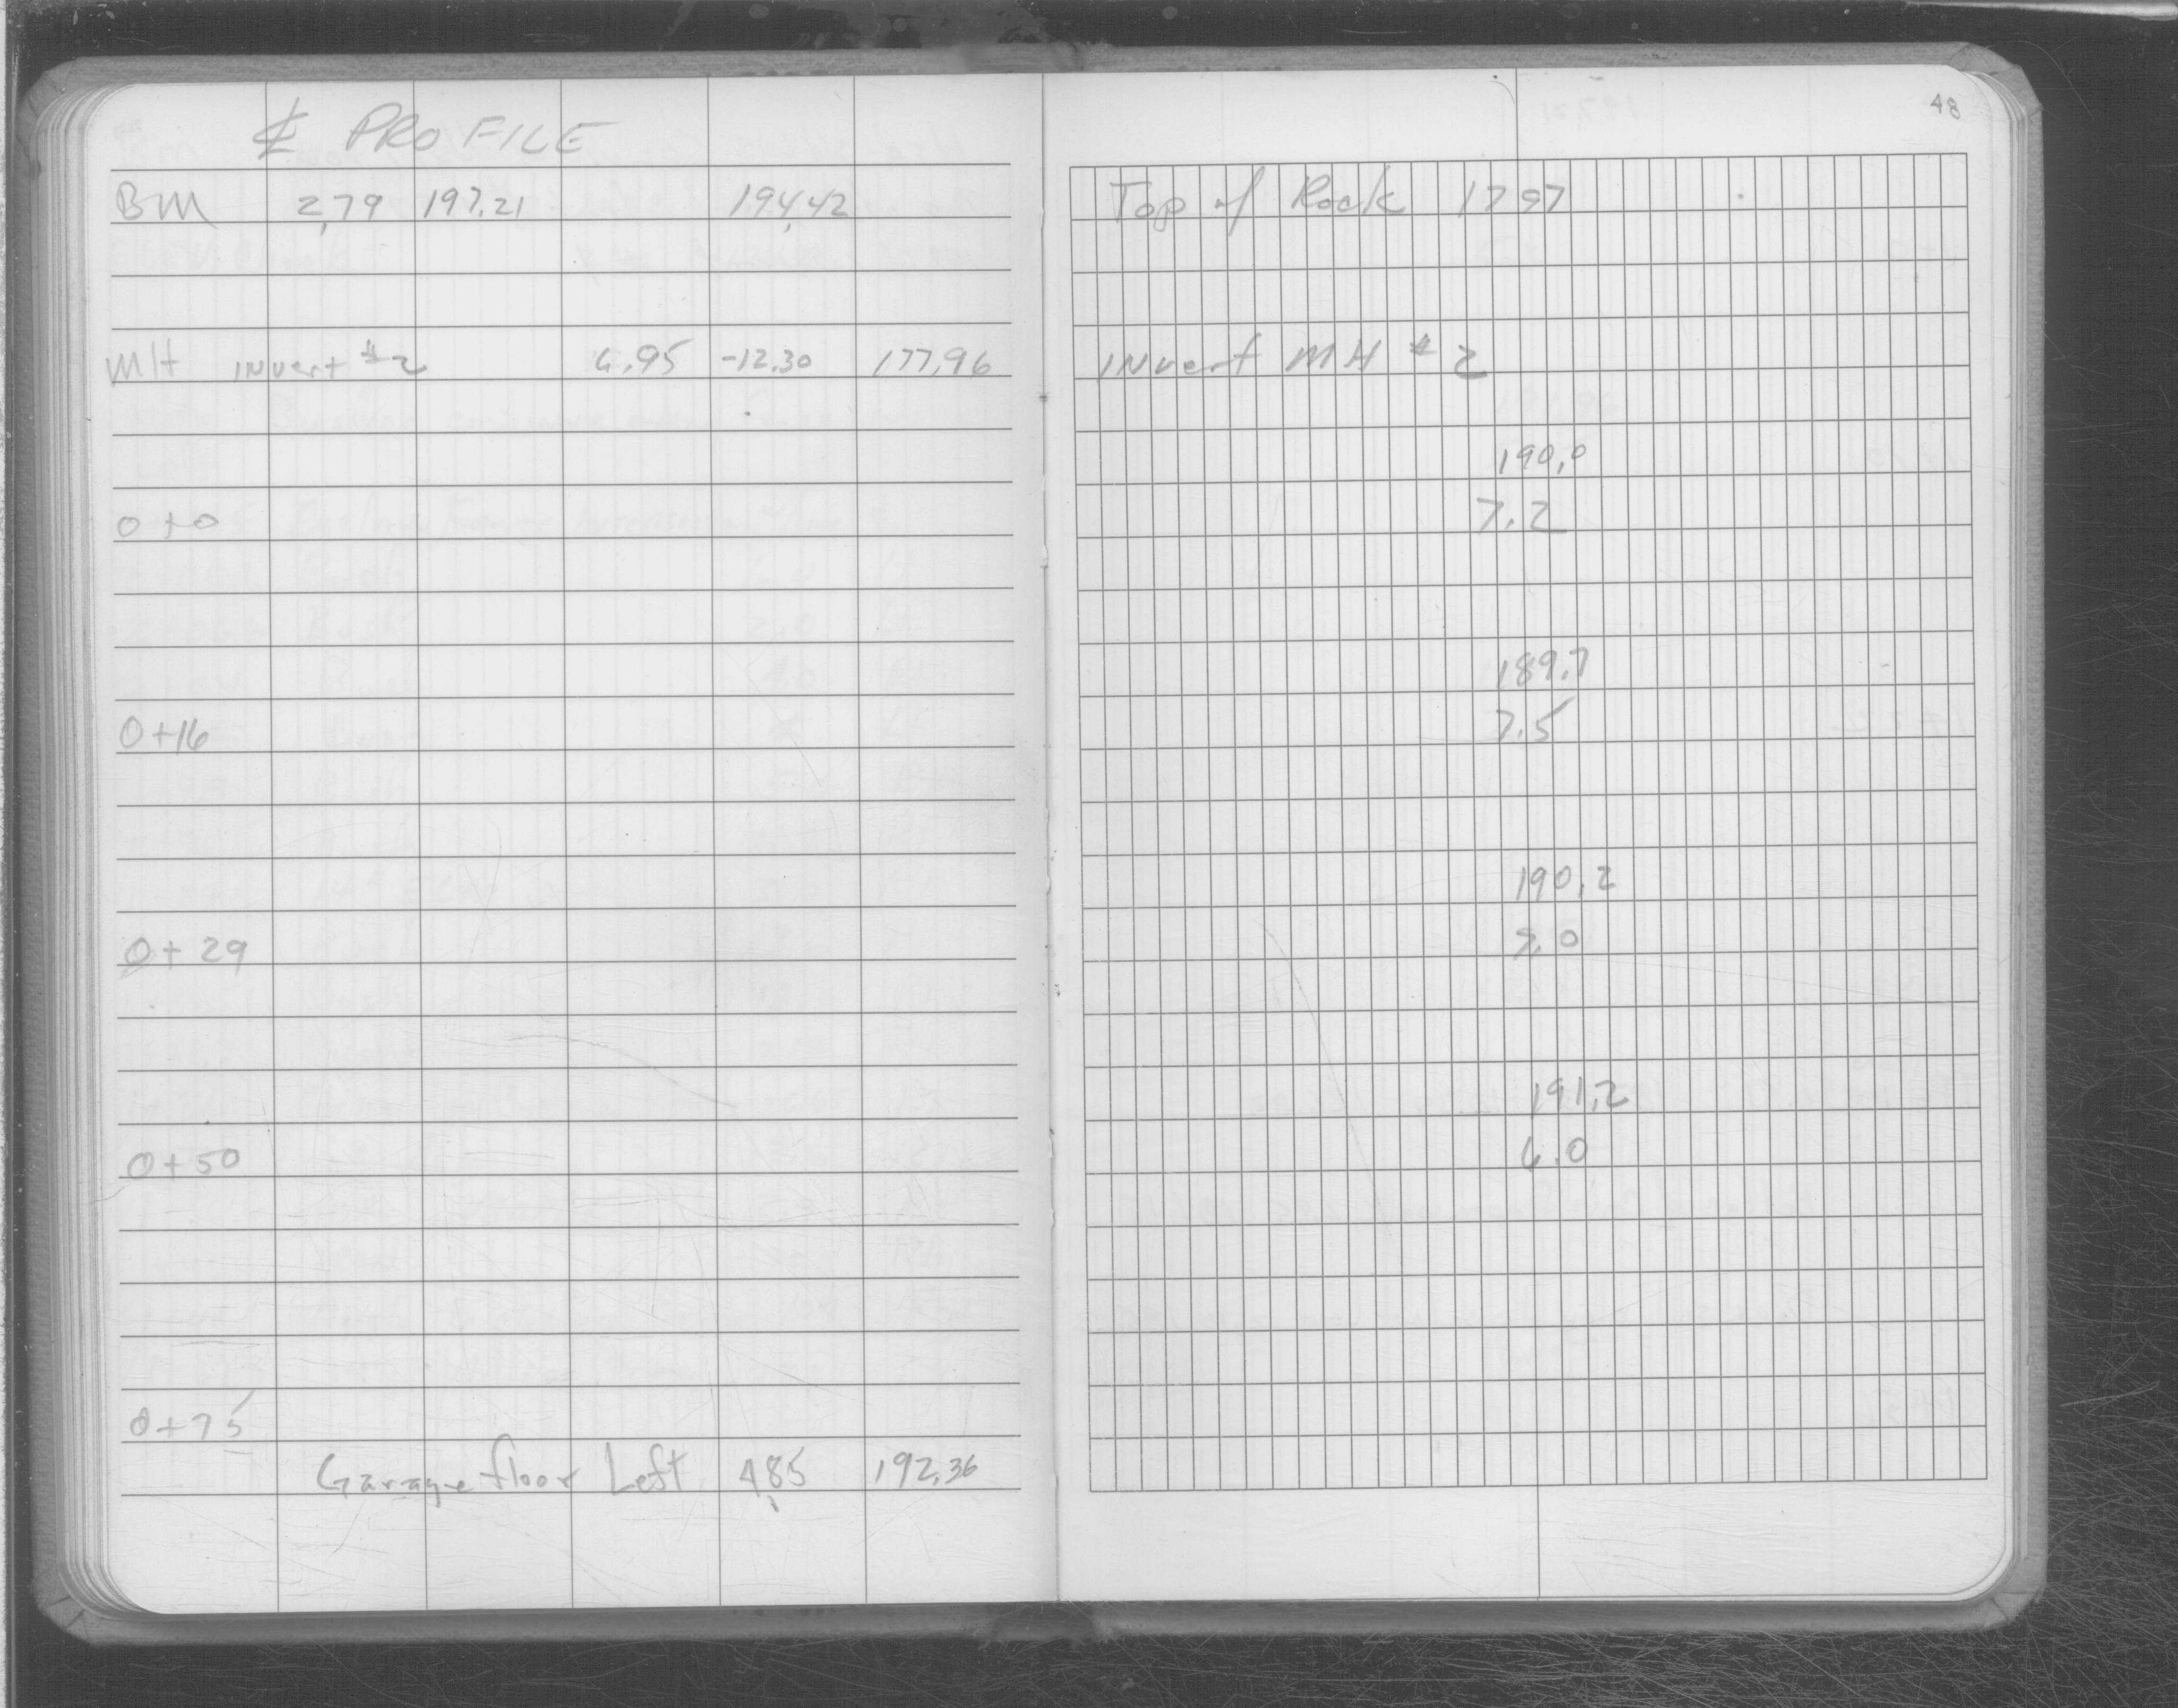 48
℄ PROFILE
BM 2.79 197.21 194.42 Top of Rock 1797
MH INvert #2 6.95 -12.30 177.96 INvert MH #2
190.0
0+0 7.2
189.7
0+16 7.5
190.2
0+29 7.0
191.2
0+50 6.0
0+75
Garage floor Left 4.85 192.36